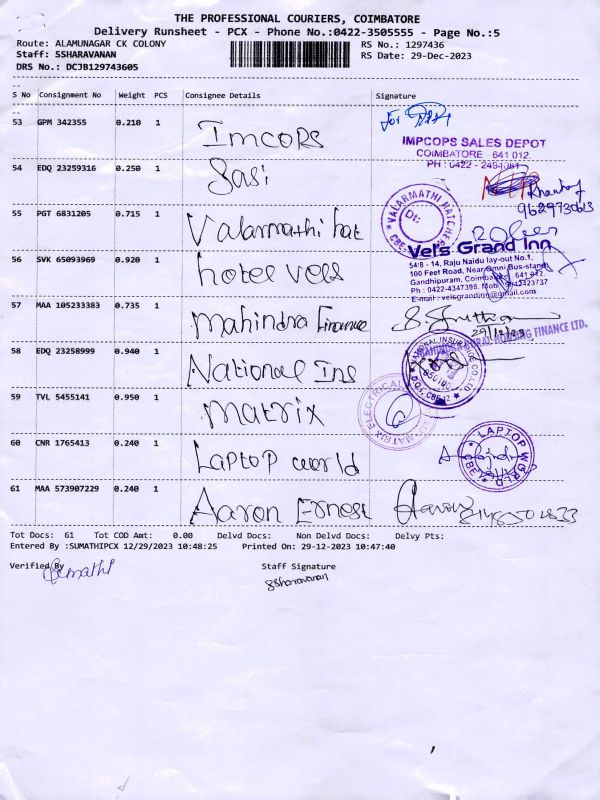 THE PROFESSIONAL COURIERS, COIMBATORE
Delivery Runsheet - PCX - Phone No.:0422-3505555 - Page No.:5
Route: ALAMUNAGAR CK COLONY
Staff: SSHARAVANAN
DRS No.: DCJB129743605
RS No.: 1297436
RS Date: 29-Dec-2023
S No Consignment No Weight PCS Consignee Details Signature
53 GPM 342355 0.210 1 Imcors
IMPCOPS SALES DEPOT
COIMBATORE 641 012.
54 EDQ 23259316 0.250 1 Sasi
9629730613
55 PGT 6831205 0.715 1 Valarmathi hat
VALARMATHI HATCHE
Dt:
56 SVK 65093969 0.920 1 hotel vels
Vel's Grand Inn
54/8 - 14, Raju Naidu lay-out No.1,
100 Feet Road, Near Omni Bus-stand
Gandhipuram, Coimbatore 641 012.
Ph : 0422-4347398. Mob
E-mail : velsgrandinn@gmail.com
57 MAA 105233383 0.735 1 Mahindra Finance
29/12/23
RURAL HOUSING FINANCE LTD.
58 EDQ 23258999 0.940 1 National Ins
NATIONAL INSURANCE CO. LTD
59 TVL 5455141 0.950 1 Matrix
MATRIX ELECTRICAL
60 CNR 1765413 0.240 1 Laptop world
LAPTOP WORLD
CBE
61 MAA 573907229 0.240 1 Aaron Ernest Aaron
Tot Docs: 61 Tot COD Amt: 0.00 Delvd Docs: Non Delvd Docs: Delvy Pts:
Entered By :SUMATHIPCX 12/29/2023 10:48:25 Printed On: 29-12-2023 10:47:40
Verified By
Staff Signature
SSharavanan